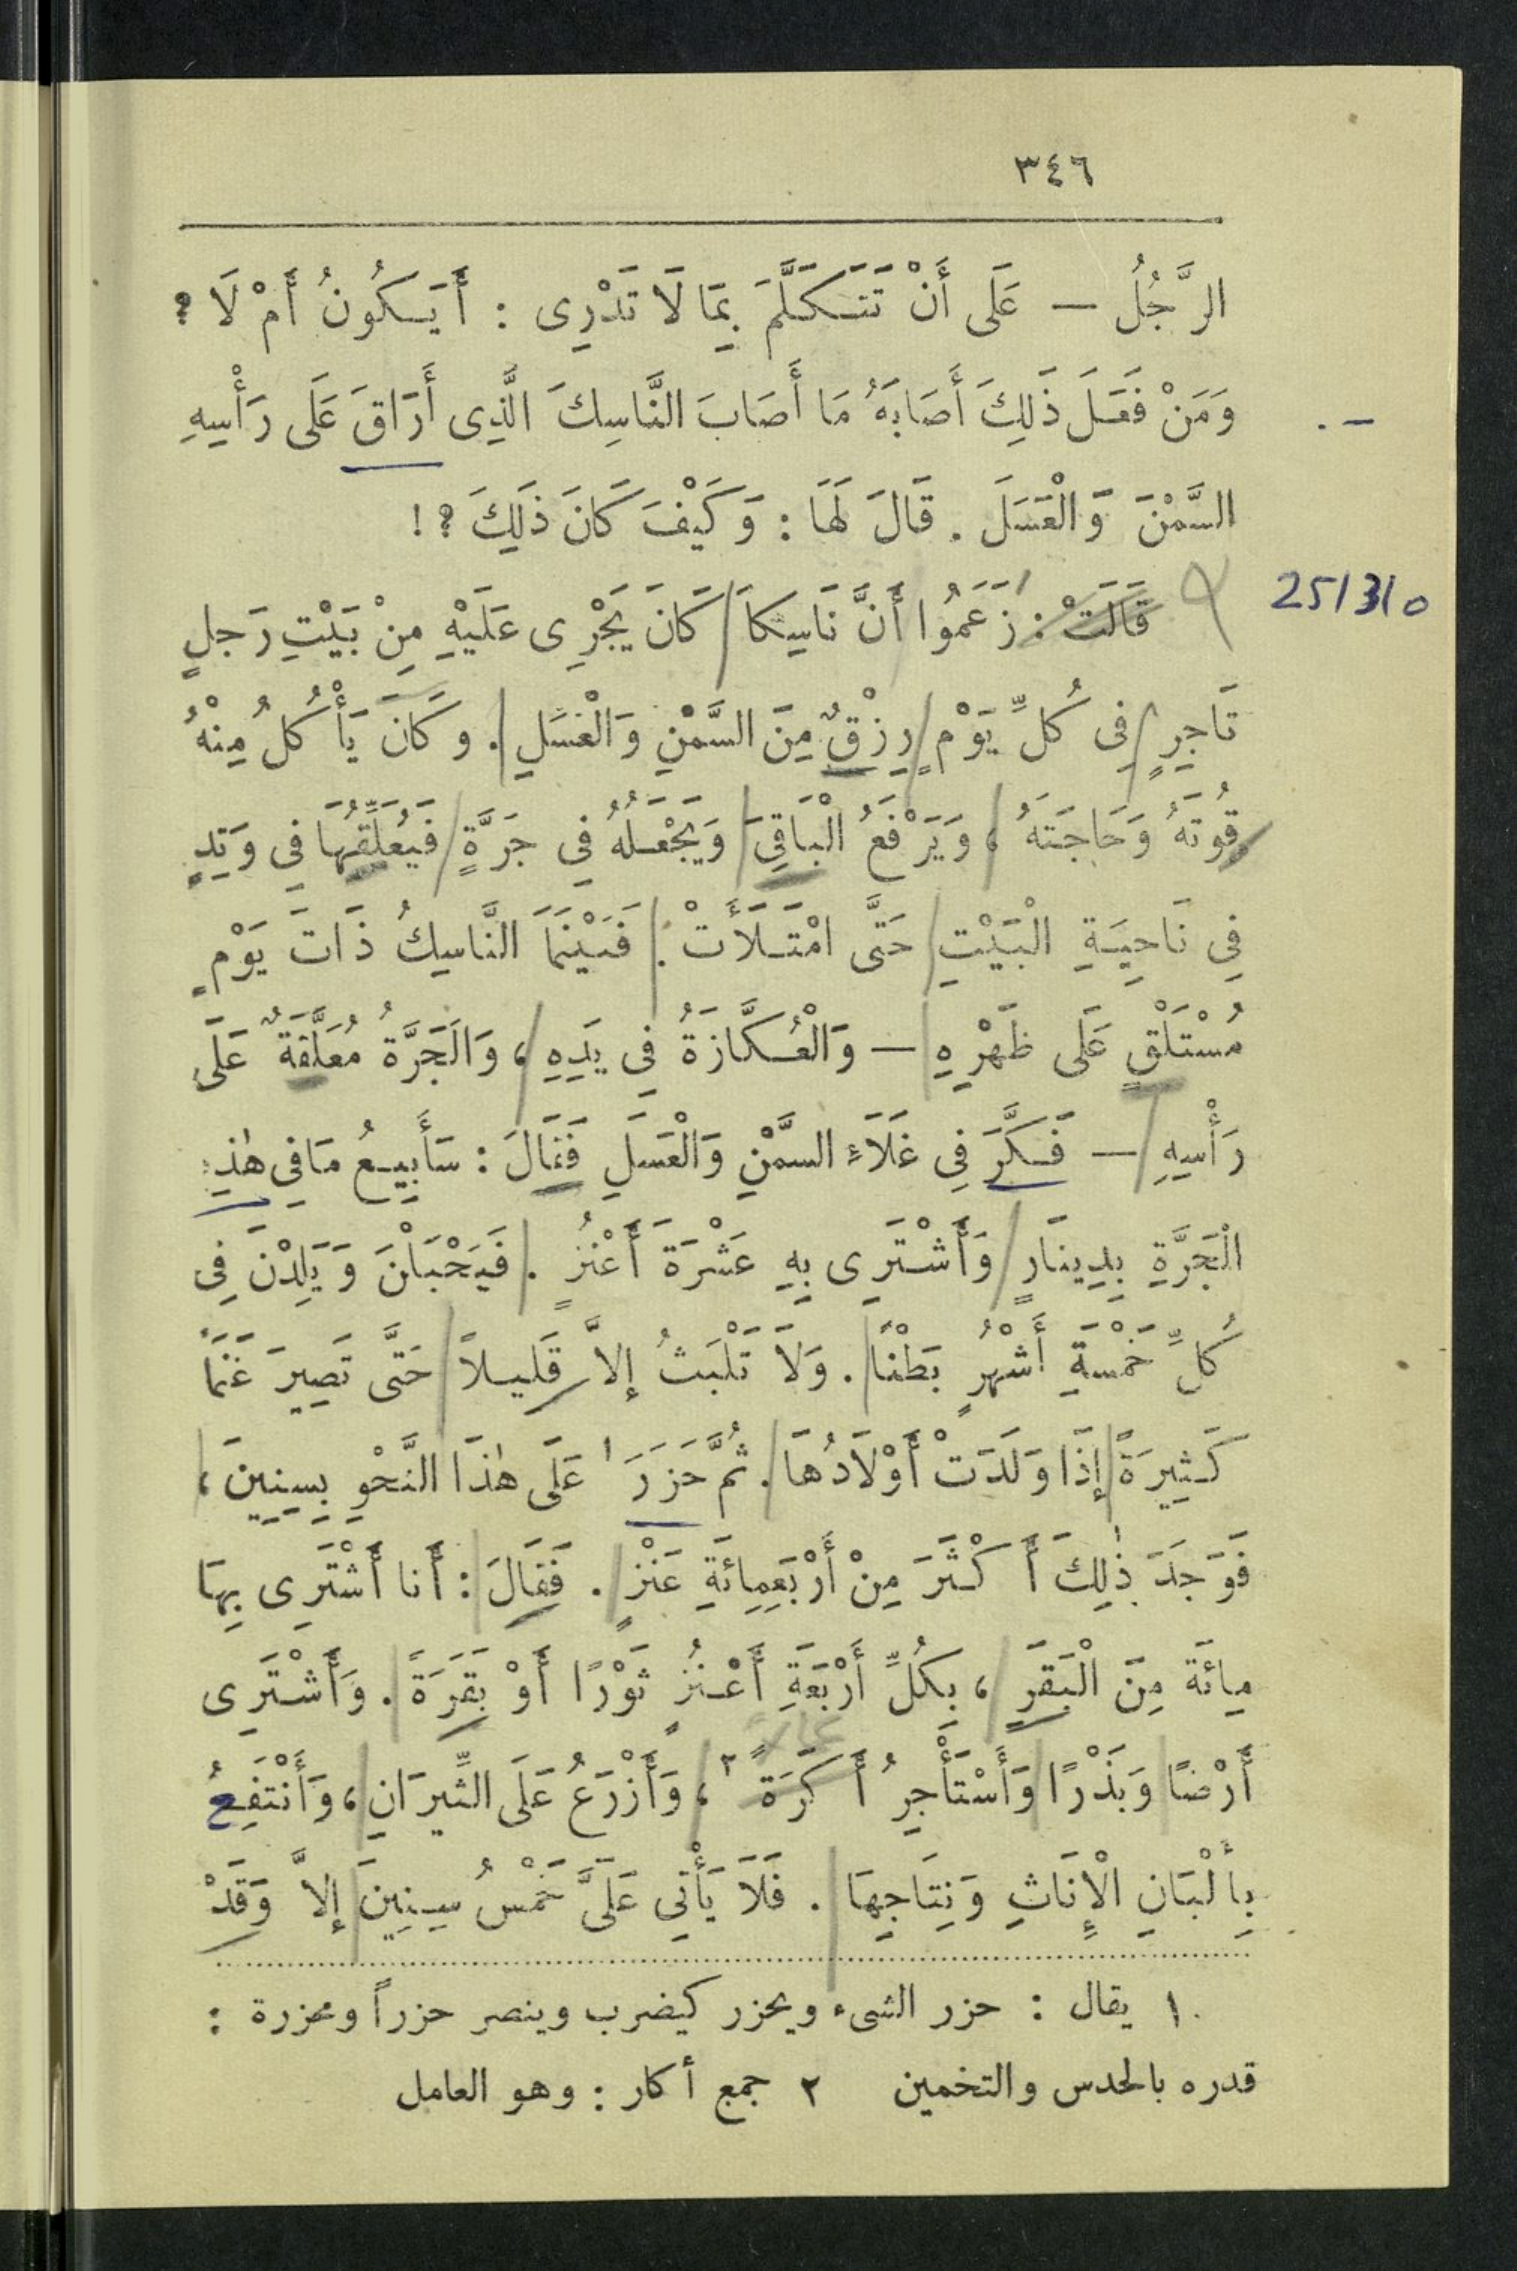 ٣٤٦
الرَّجُلُ — عَلَى أَنْ تَتَكَلَّمَ بِمَا لَا تَدْرِى : أَيَكُونُ أَمْ لَا ؟
وَمَنْ فَعَلَ ذَلِكَ أَصَابَهُ مَا أَصَابَ النَّاسِكَ الَّذِى أَرَاقَ عَلَى رَأْسِهِ
السَّمْنَ وَالْعَسَلَ . قَالَ لَهَا : وَكَيْفَ كَانَ ذَلِكَ ؟!
25/3/0
قَالَتْ : زَعَمُوا أَنَّ نَاسِكاً كَانَ يَجْرِى عَلَيْهِ مِنْ بَيْتِ رَجلٍ
تَاجِرٍ فِى كُلِّ يَوْمٍ رِزْقٌ مِنَ السَّمْنِ وَالْعَسَلِ . وكَانَ يَأْكُلُ مِنْهُ
قُوتَهُ وَحَاجَتَهُ ، وَيَرْفَعُ الْبَاقِىَ وَيَجْعَلُهُ فِي جَرَّةٍ فَيُعَلِّقُهَا فِي وَتِدٍ
فِي نَاحِيَةِ الْبَيْتِ حَتَّى امْتَلَأَتْ . فَبَيْنَمَا النَّاسِكُ ذَاتَ يَوْمٍ
مُسْتَلْقٍ عَلَى ظَهْرِهِ — وَالْعُكَّازَةُ فِي يَدِهِ ، وَالْجَرَّةُ مُعَلَّقَةٌ عَلَى
رَأْسِهِ — فَكَّرَ فِي غَلَاءِ السَّمْنِ وَالْعَسَلِ فَقَالَ : سَأَبِيعُ مَا فِي هٰذِهِ
الْجَرَّةِ بِدِينَارٍ وَأَشْتَرِى بِهِ عَشْرَةَ أَعْنُزٍ . فَيَحْبَلْنَ وَيَلِدْنَ فِى
كُلِّ خَمْسَةِ أَشْهُرٍ بَطْنًا . وَلَا تَلْبَثُ إلاَّ قَلِيلاً حَتَّى تَصِيرَ غَنَمًا
كَثِيرَةً إِذَا وَلَدَتْ أَوْلَادُهَا . ثُمَّ حَزَرَ ١ عَلَى هٰذَا النَّحْوِ بِسِنِينَ ،
فَوَجَدَ ذٰلِكَ أَكْثَرَ مِنْ أَرْبَعِمِائَةِ عَنْزٍ . فَقَالَ : أَنا أَشْتَرِى بِهَا
مِائَة مِنَ الْبَقَرِ ، بِكُلِّ أَرْبَعَةِ أَعْنُزٍ ثَوْرًا أَوْ بَقَرَةً . وَأَشْتَرِى
أَرْضًا وَبَذْرًا وَأَسْتَأْجِرُ أَكَرَةً ٢ ، وَأَزْرَعُ عَلَى الثِّيرَانِ ، وَأَنْتَفِعُ
بِأَلْبَانِ الْإِنَاثِ وَنِتَاجِهَا . فَلَا يَأْتِي عَلَىَّ خَمْسُ سِنِينَ إلاَّ وَقَدْ
١ يقال : حزر الشىء ويحزر كيضرب وينصر حزراً ومحزرة :
قدره بالحدس والتخمين ٢ جمع أكار : وهو العامل